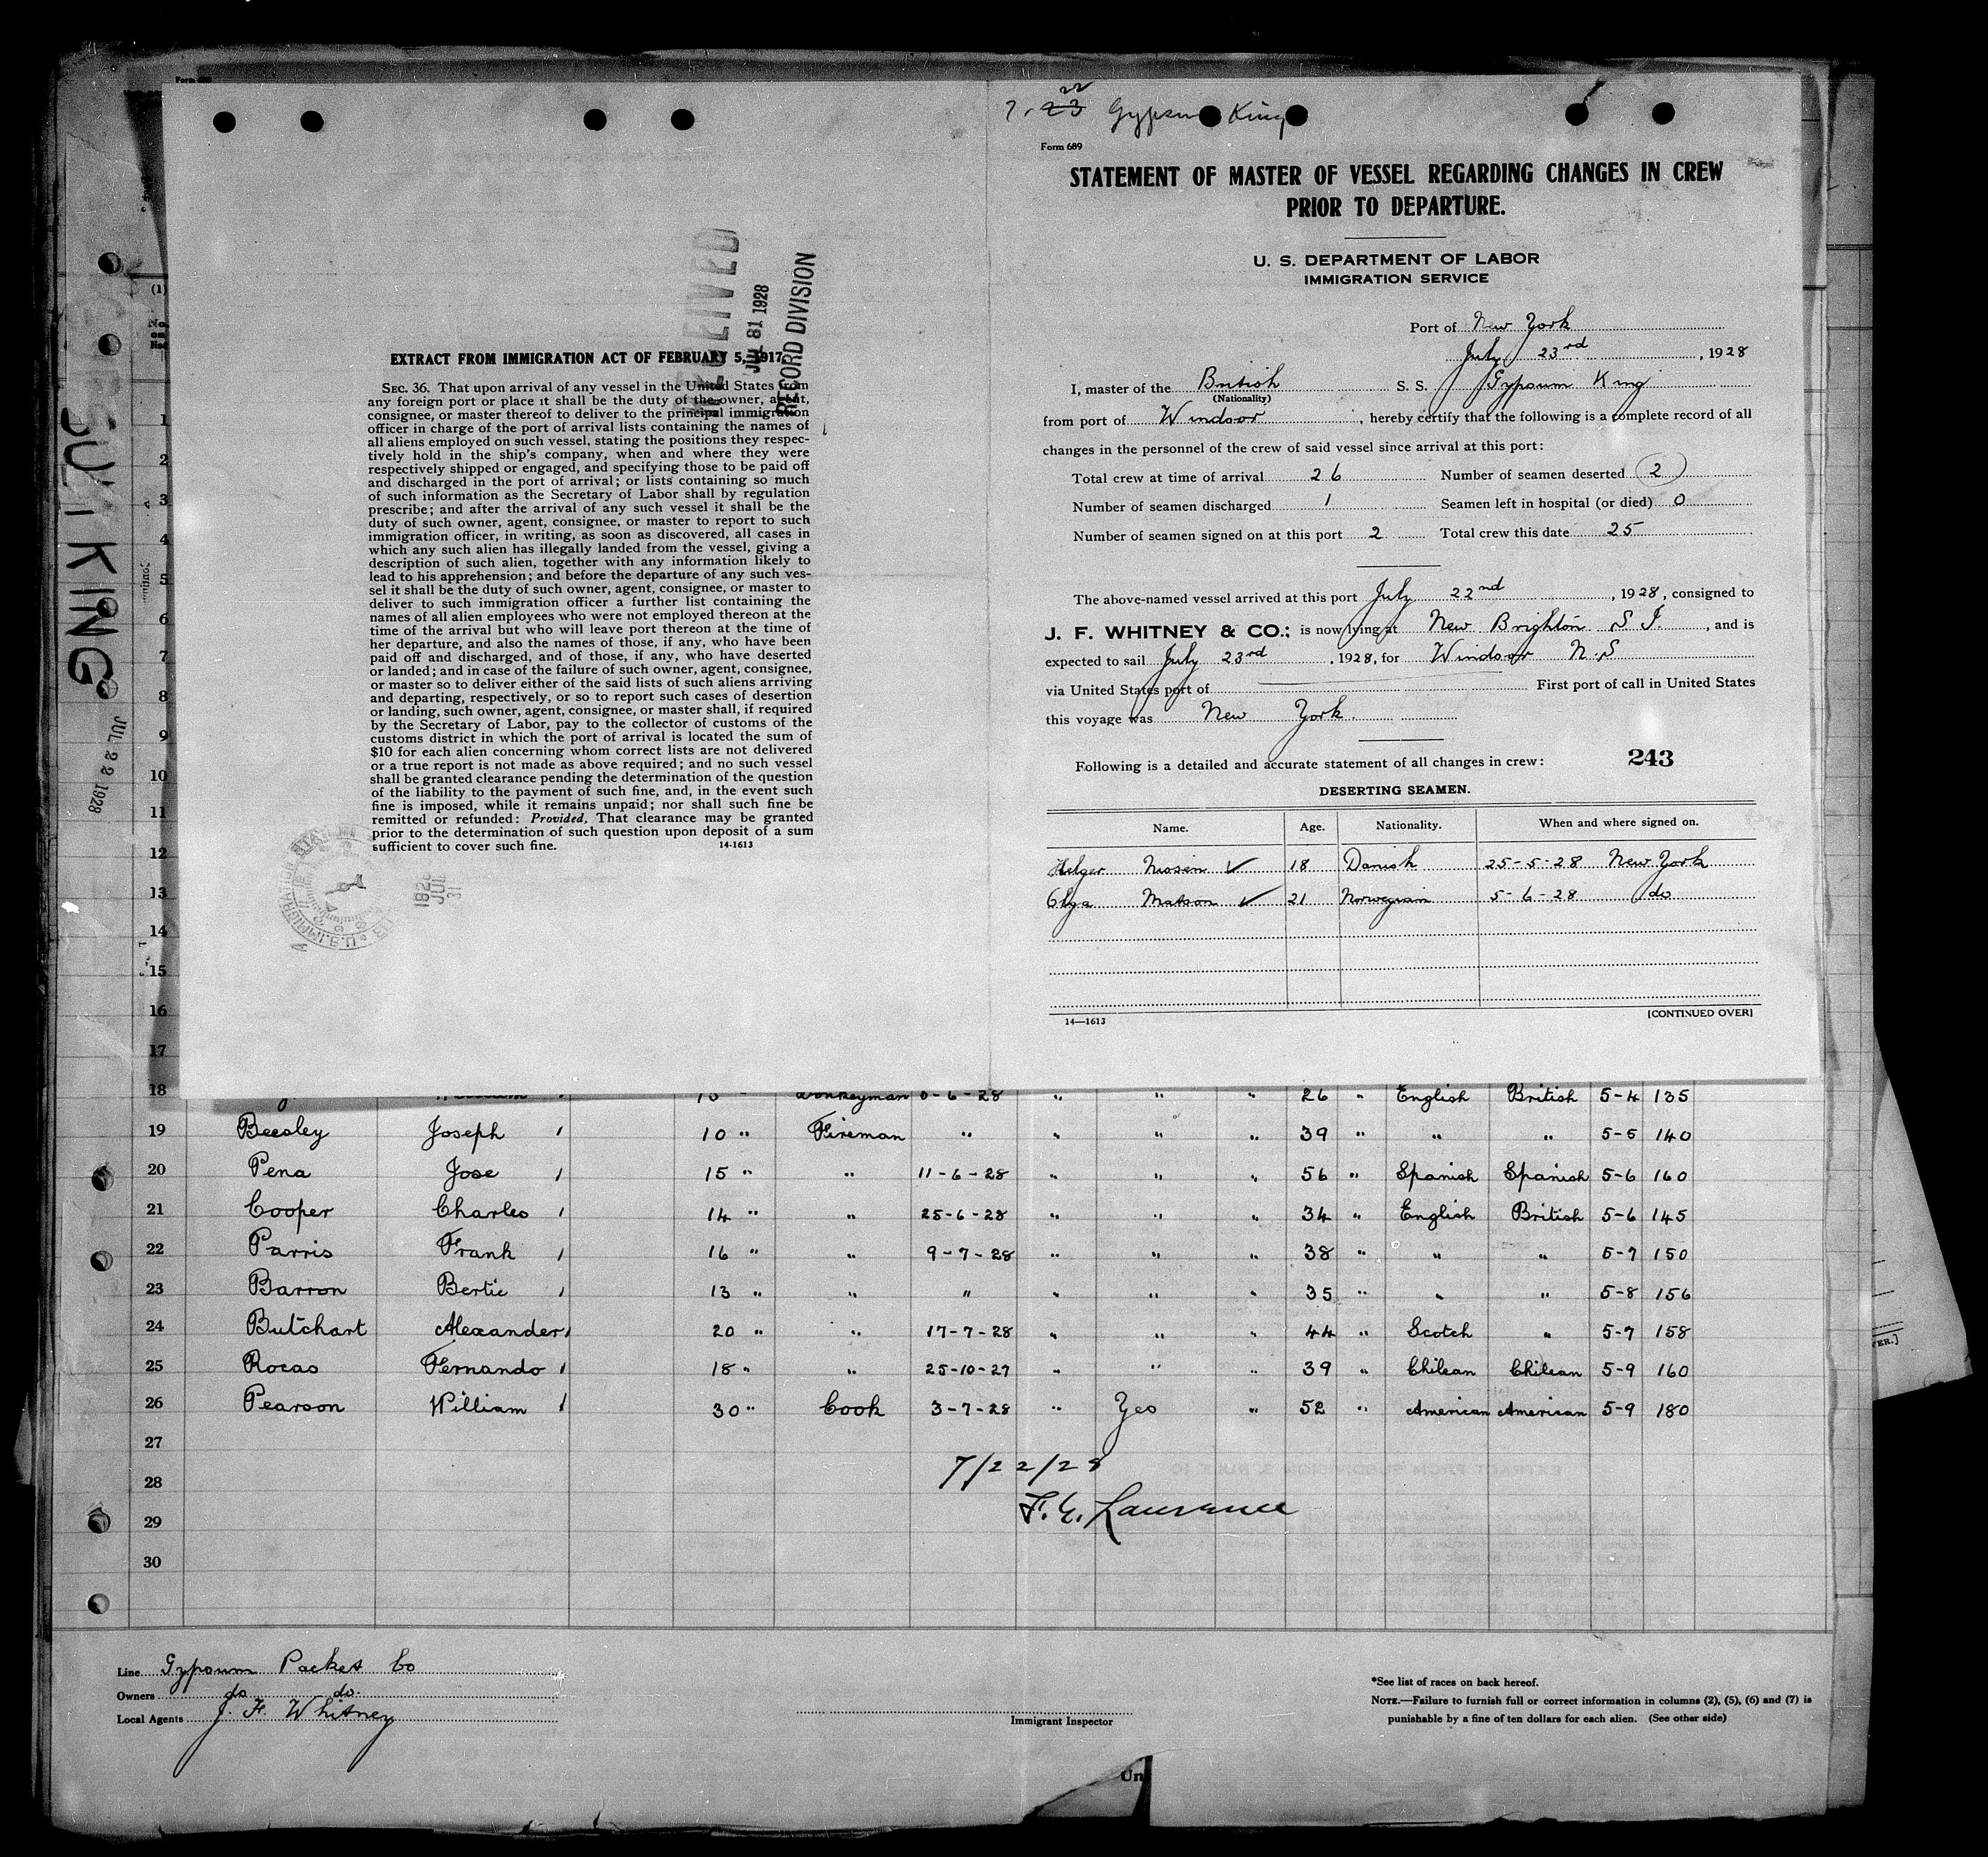 7. 23 22 Gypsum King
Form 689
STATEMENT OF MASTER OF VESSEL REGARDING CHANGES IN CREW
PRIOR TO DEPARTURE.
U. S. DEPARTMENT OF LABOR
IMMIGRATION SERVICE
Port of New York
July 23rd, 1928
I, master of the British S. S. Gypsum King
(Nationality)
from port of Windsor, hereby certify that the following is a complete record of all
changes in the personnel of the crew of said vessel since arrival at this port:
Total crew at time of arrival 26 Number of seamen deserted 2
Number of seamen discharged 1 Seamen left in hospital (or died) 0
Number of seamen signed on at this port 2 Total crew this date 25
The above-named vessel arrived at this port July 22nd, 1928, consigned to
J. F. WHITNEY & CO.; is now lying at New Brighton S I., and is
expected to sail July 23rd, 1928, for Windsor N.S
via United States port of First port of call in United States
this voyage was New York.
Following is a detailed and accurate statement of all changes in crew: 243
DESERTING SEAMEN.
Name. Age. Nationality. When and where signed on.
Helger 18 Danish 25-5-28 New York
Matson 21 Norwegian 5-6-28 do
14—1613 [CONTINUED OVER]
RECEIVED
JUL 31 1928
RECORD DIVISION
EXTRACT FROM IMMIGRATION ACT OF FEBRUARY 5, 1917.
SEC. 36. That upon arrival of any vessel in the United States from
any foreign port or place it shall be the duty of the owner, agent,
consignee, or master thereof to deliver to the principal immigration
officer in charge of the port of arrival lists containing the names of
all aliens employed on such vessel, stating the positions they respec-
tively hold in the ship's company, when and where they were
respectively shipped or engaged, and specifying those to be paid off
and discharged in the port of arrival; or lists containing so much
of such information as the Secretary of Labor shall by regulation
prescribe; and after the arrival of any such vessel it shall be the
duty of such owner, agent, consignee, or master to report to such
immigration officer, in writing, as soon as discovered, all cases in
which any such alien has illegally landed from the vessel, giving a
description of such alien, together with any information likely to
lead to his apprehension; and before the departure of any such ves-
sel it shall be the duty of such owner, agent, consignee, or master to
deliver to such immigration officer a further list containing the
names of all alien employees who were not employed thereon at the
time of the arrival but who will leave port thereon at the time of
her departure, and also the names of those, if any, who have been
paid off and discharged, and of those, if any, who have deserted
or landed; and in case of the failure of such owner, agent, consignee,
or master so to deliver either of the said lists of such aliens arriving
and departing, respectively, or so to report such cases of desertion
or landing, such owner, agent, consignee, or master shall, if required
by the Secretary of Labor, pay to the collector of customs of the
customs district in which the port of arrival is located the sum of
$10 for each alien concerning whom correct lists are not delivered
or a true report is not made as above required; and no such vessel
shall be granted clearance pending the determination of the question
of the liability to the payment of such fine, and, in the event such
fine is imposed, while it remains unpaid; nor shall such fine be
remitted or refunded: Provided, That clearance may be granted
prior to the determination of such question upon deposit of a sum
sufficient to cover such fine. 14-1613
KING
JUL 22 1928
(1)
1
2
3
4
5
6
7
8
9
10
11
12
13
14
15
16
17
18 Donkeyman 26 " English British 5-4 135
19 Beesley Joseph 10 " Fireman " " " " 39 " " " 5-5 140
20 Pena Jose 15 " " 11-6-28 " " " 56 " Spanish Spanish 5-6 160
21 Cooper Charles 14 " " 25-6-28 " " " 34 " English British 5-6 145
22 Parris Frank 16 " " 9-7-28 " " " 38 " " " 5-7 150
23 Barron Bertie 13 " " " " " " 35 " " " 5-8 156
24 Butchart Alexander 20 " " 17-7-28 " " " 44 " Scotch " 5-7 158
25 Rocas Fernando 18 " " 25-10-27 " " " 39 " Chilean Chilean 5-9 160
26 Pearson William 30 " Cook 3-7-28 " Yes " 52 " American American 5-9 180
27
28 7/22/28
29 F. E. Lawrence
30
Line Gypsum Packet Co
Owners do do.
Local Agents J. F. Whitney
Immigrant Inspector
*See list of races on back hereof.
NOTE.—Failure to furnish full or correct information in columns (2), (5), (6) and (7) is
punishable by a fine of ten dollars for each alien. (See other side)